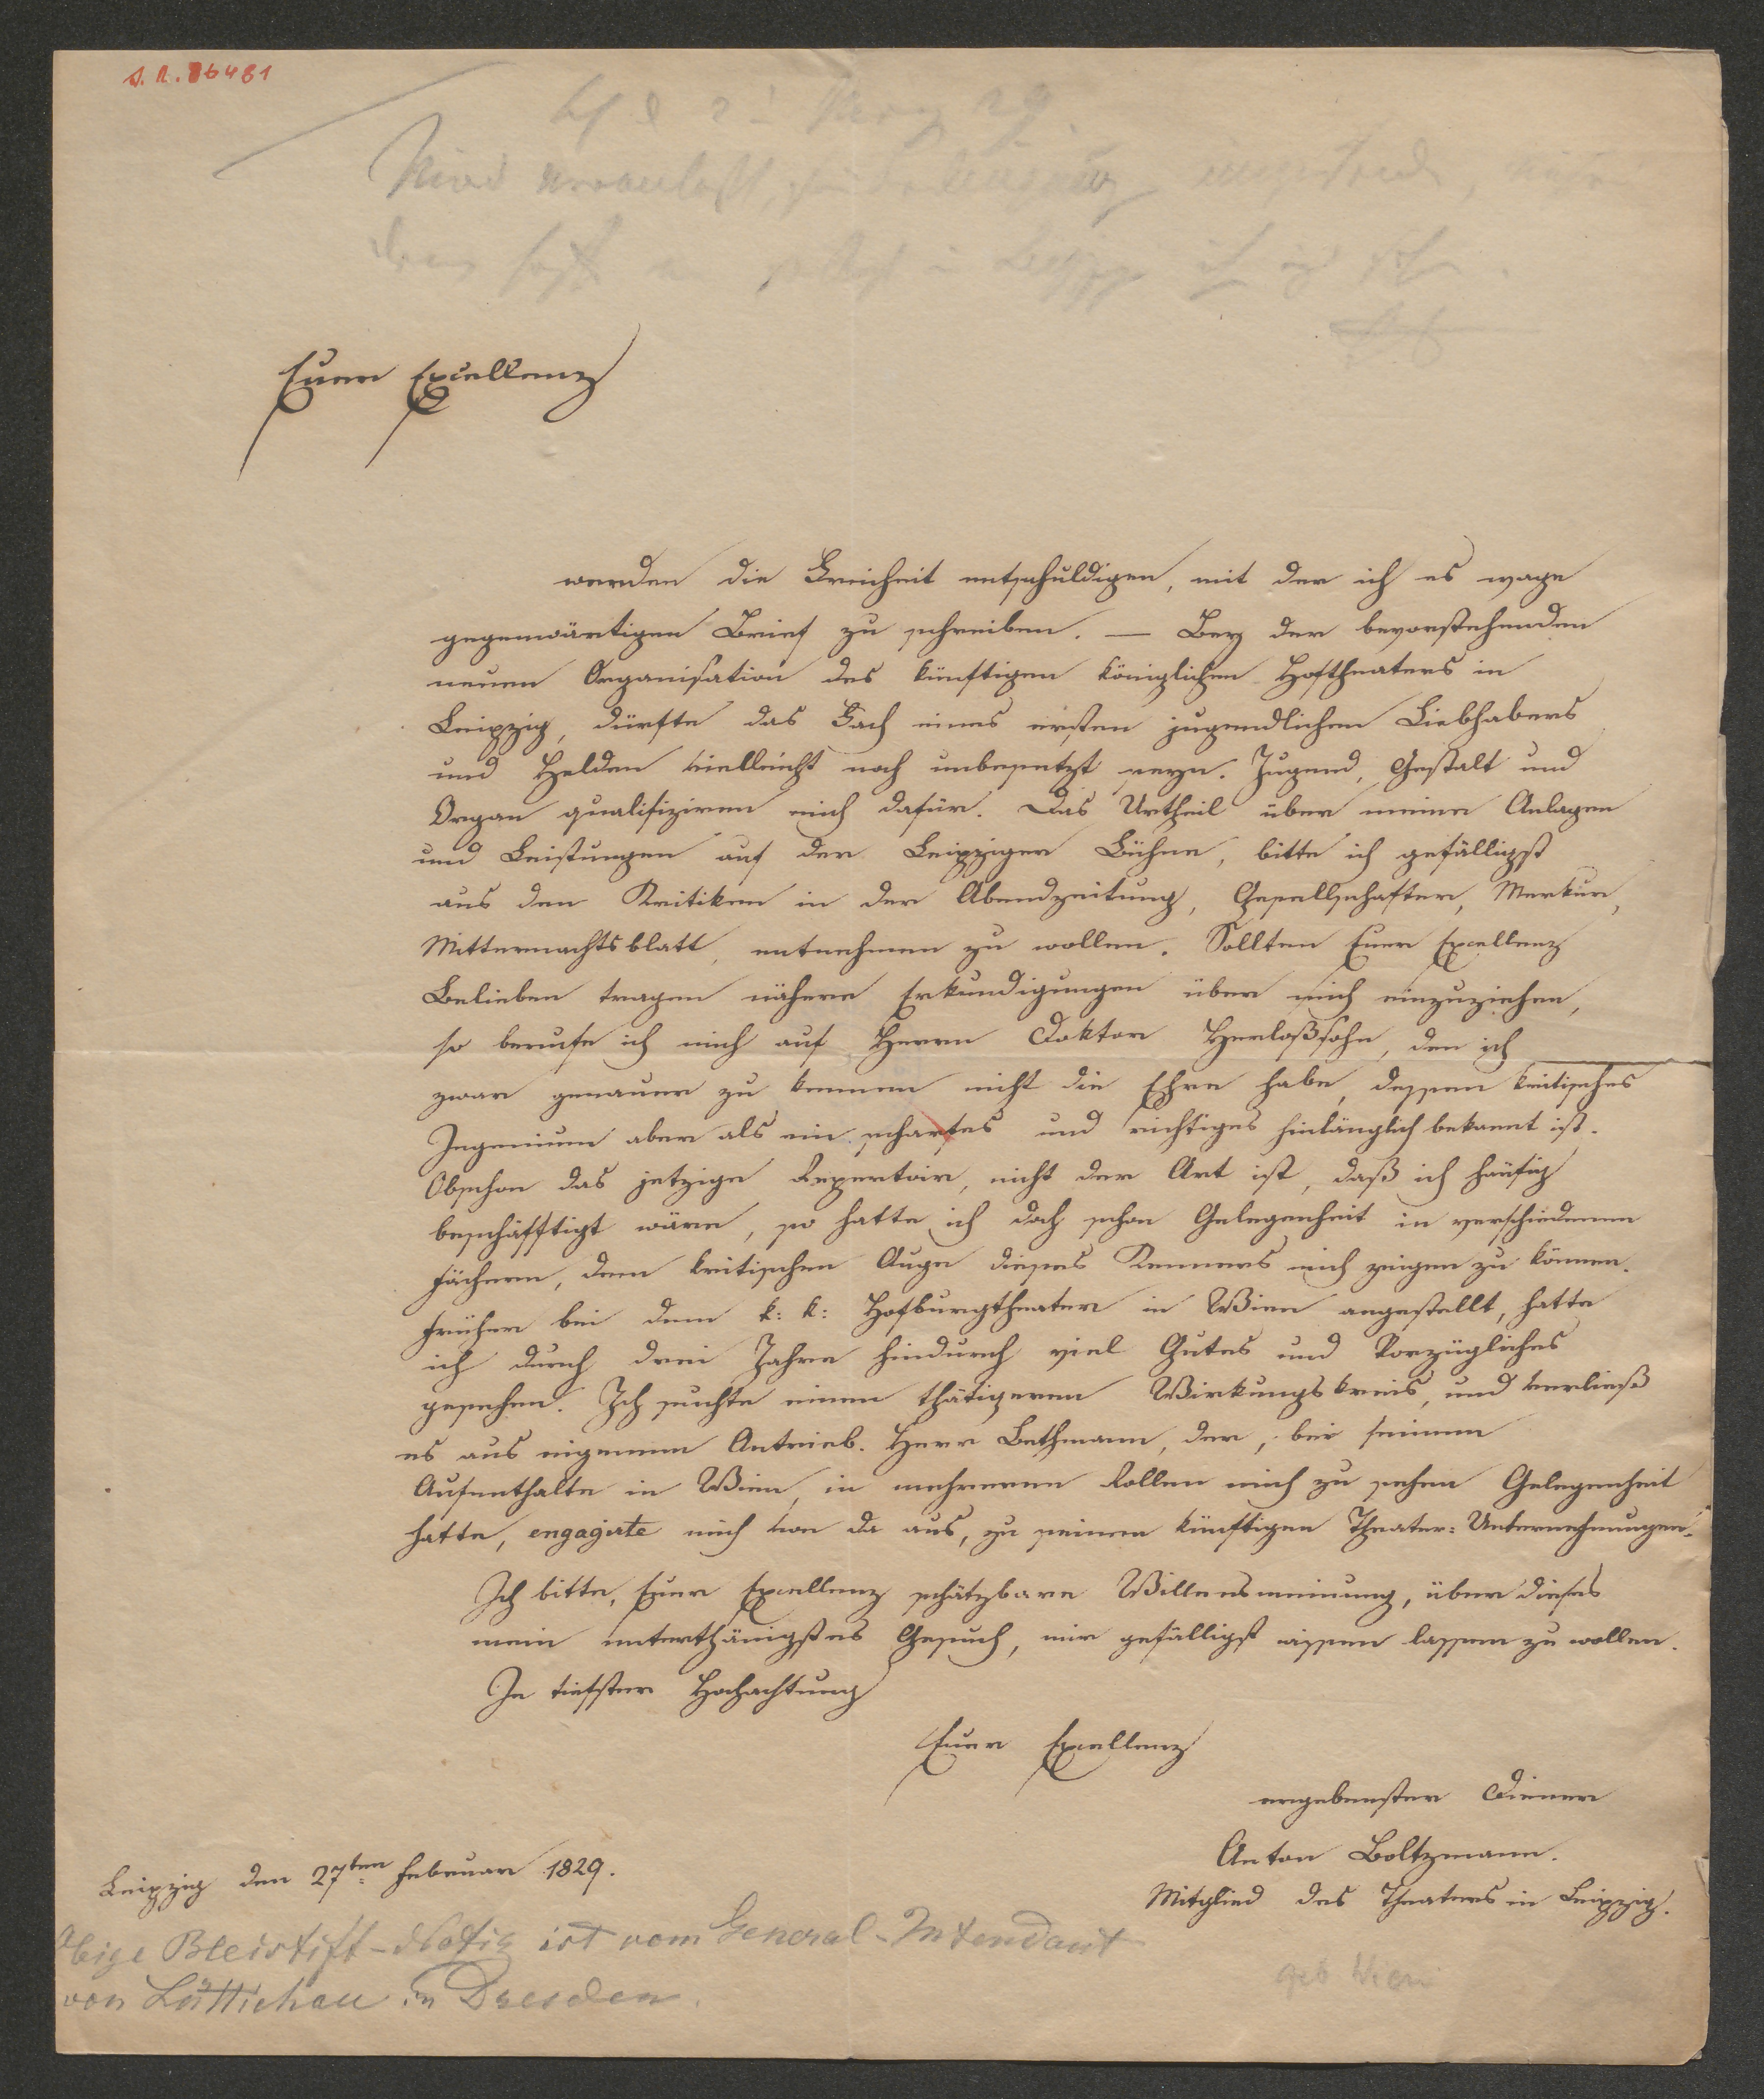 Euer Excellenz
werden die Freiheit entschuldigen, mit der ich es wage
gegenwärtigen Brief zu schreiben. — Bey der bevorstehenden
neuen Organisation des künftigen königlichen Hoftheaters in
Leipzig, dürfte das Fach eines ersten jugendlichen Liebhabers
und Helden vielleicht noch unbesetzt seyn. Jugend, Gestalt und
Organ qualifiziren mich dafür. Das Urtheil über meine Anlagen
und Leistungen auf der Leipziger Bühne, bitte ich gefälligst
aus den Kritiken in der Abendzeitung, Gesellschafter, Merkur,
Mitternachtsblatt, entnehmen zu wollen. Sollten Euer Excellenz
Belieben tragen nähere Erkundigungen über mich einzuziehen,
so berufe ich mich auf Herrn Doktor Herloßsohn, den ich
zwar genauer zu kennen nicht die Ehre habe, dessen kritisches
Ingenium aber als ein scharfes und richtiges hinlänglich bekannt ist.
Obschon das jetzige Repertoir, nicht der Art ist, daß ich häufig
beschäfftigt wäre, so hatte ich doch schon Gelegenheit in verschiedenen
Fächern, dem kritischen Auge dieses Kenners mich zeigen zu können.
Früher bei dem k: k: Hofburgtheater in Wien angestellt, hatte
ich durch drei Jahre hindurch viel Gutes und Vorzügliches
gesehen. Ich suchte einen thätigeren Wirkungskreis, und verließ
es aus eigenem Antrieb. Herr Bethmann, der, bei seinem
Aufenthalte in Wien, in mehreren Rollen mich zu sehen Gelegenheit
hatte, engagirte mich von da aus, zu seinen künftigen Theater=Unternehmungen.
Ich bitte, Euer Excellenz schätzbare Willensmeinung, über dieses
mein unterthänigstes Gesuch, mir gefälligst wissen lassen zu wollen.
In tiefster Hochachtung
Euer Excellenz
ergebenster Diener
Anton Boltzmann.
Mitglied des Theaters in Leipzig.
Leipzig den 27ten Februar 1829.
Obige Bleistift-Notiz ist vom General-Intendant
von Lüttichau in Dresden.
geb Wien